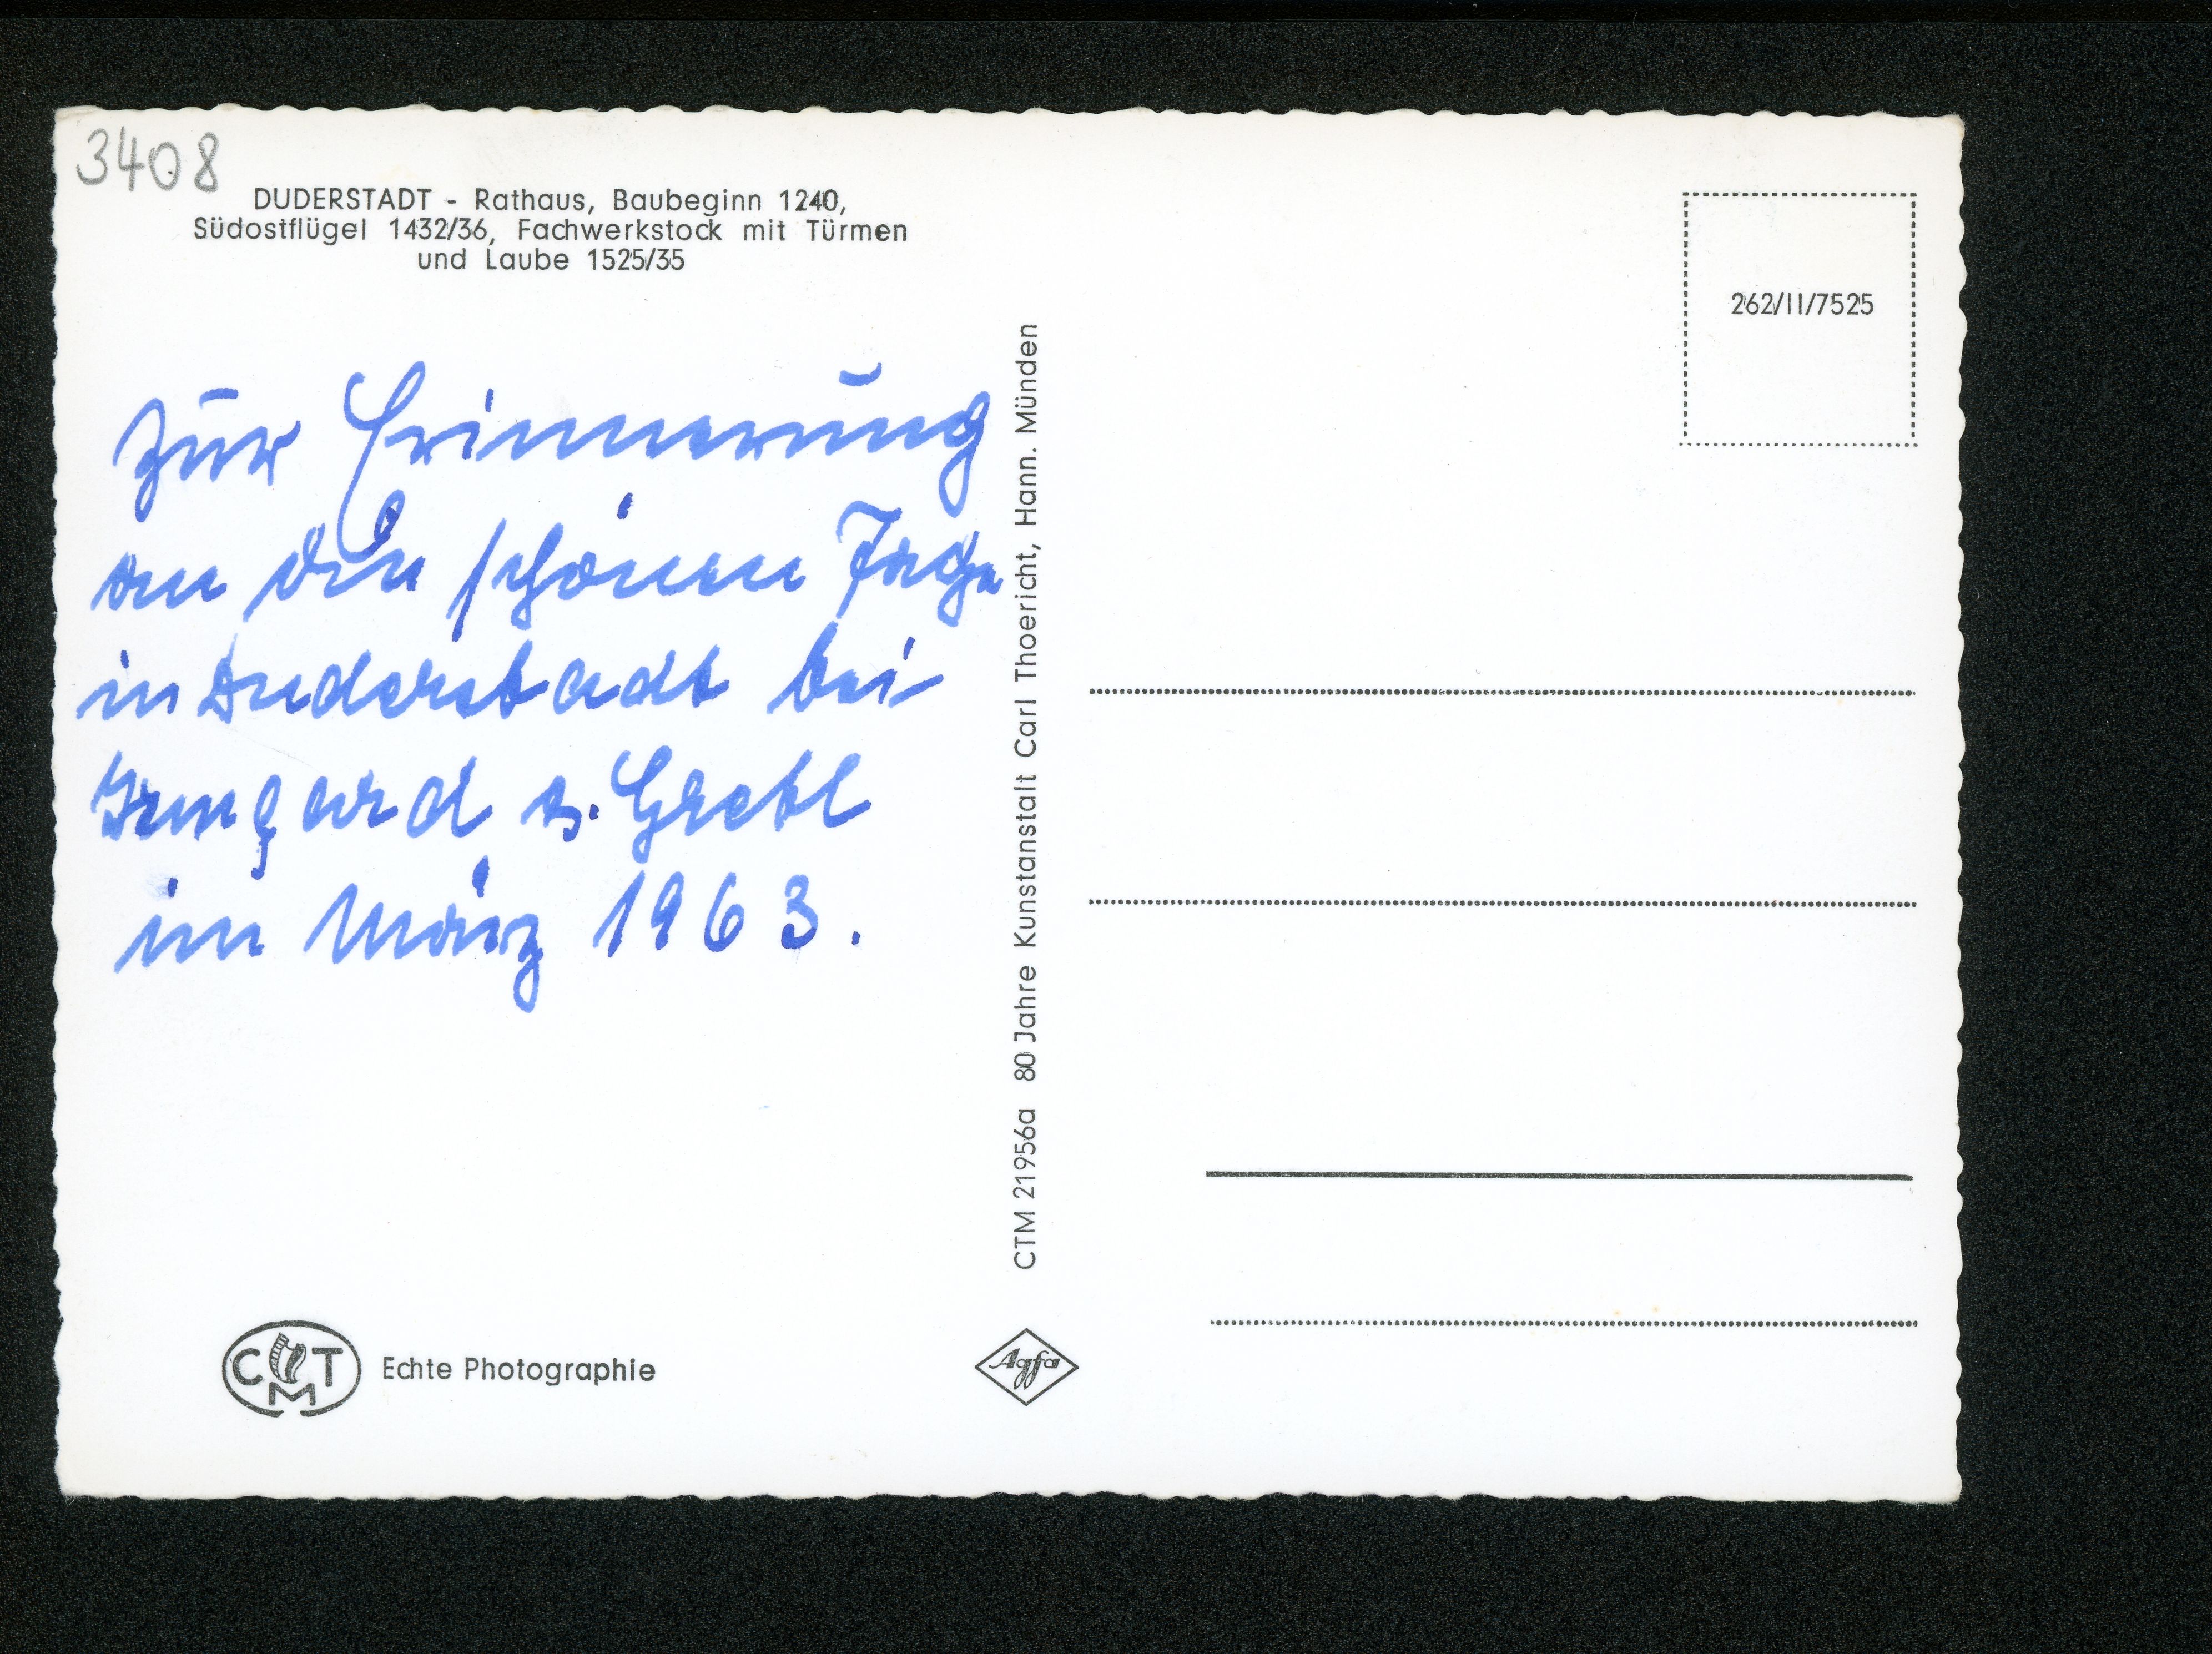 3408
DUDERSTADT - Rathaus, Baubeginn 1240,
Südostflügel 1432/36, Fachwerkstock mit Türmen
und Laube 1525/35
262/II/7525
Zur Erinnerung
an die schönen Tage
in Duderstadt bei
Irmgard u. Gretl
im März 1963.
CTM 21956a 80 Jahre Kunstanstalt Carl Thoericht, Hann. Münden
CMT
Echte Photographie
Agfa